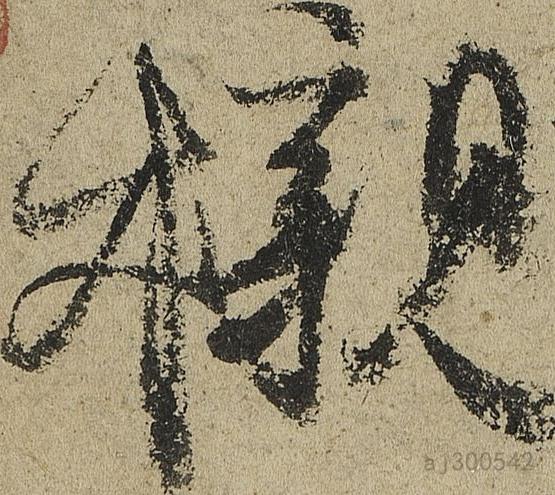 櫬
aj300542